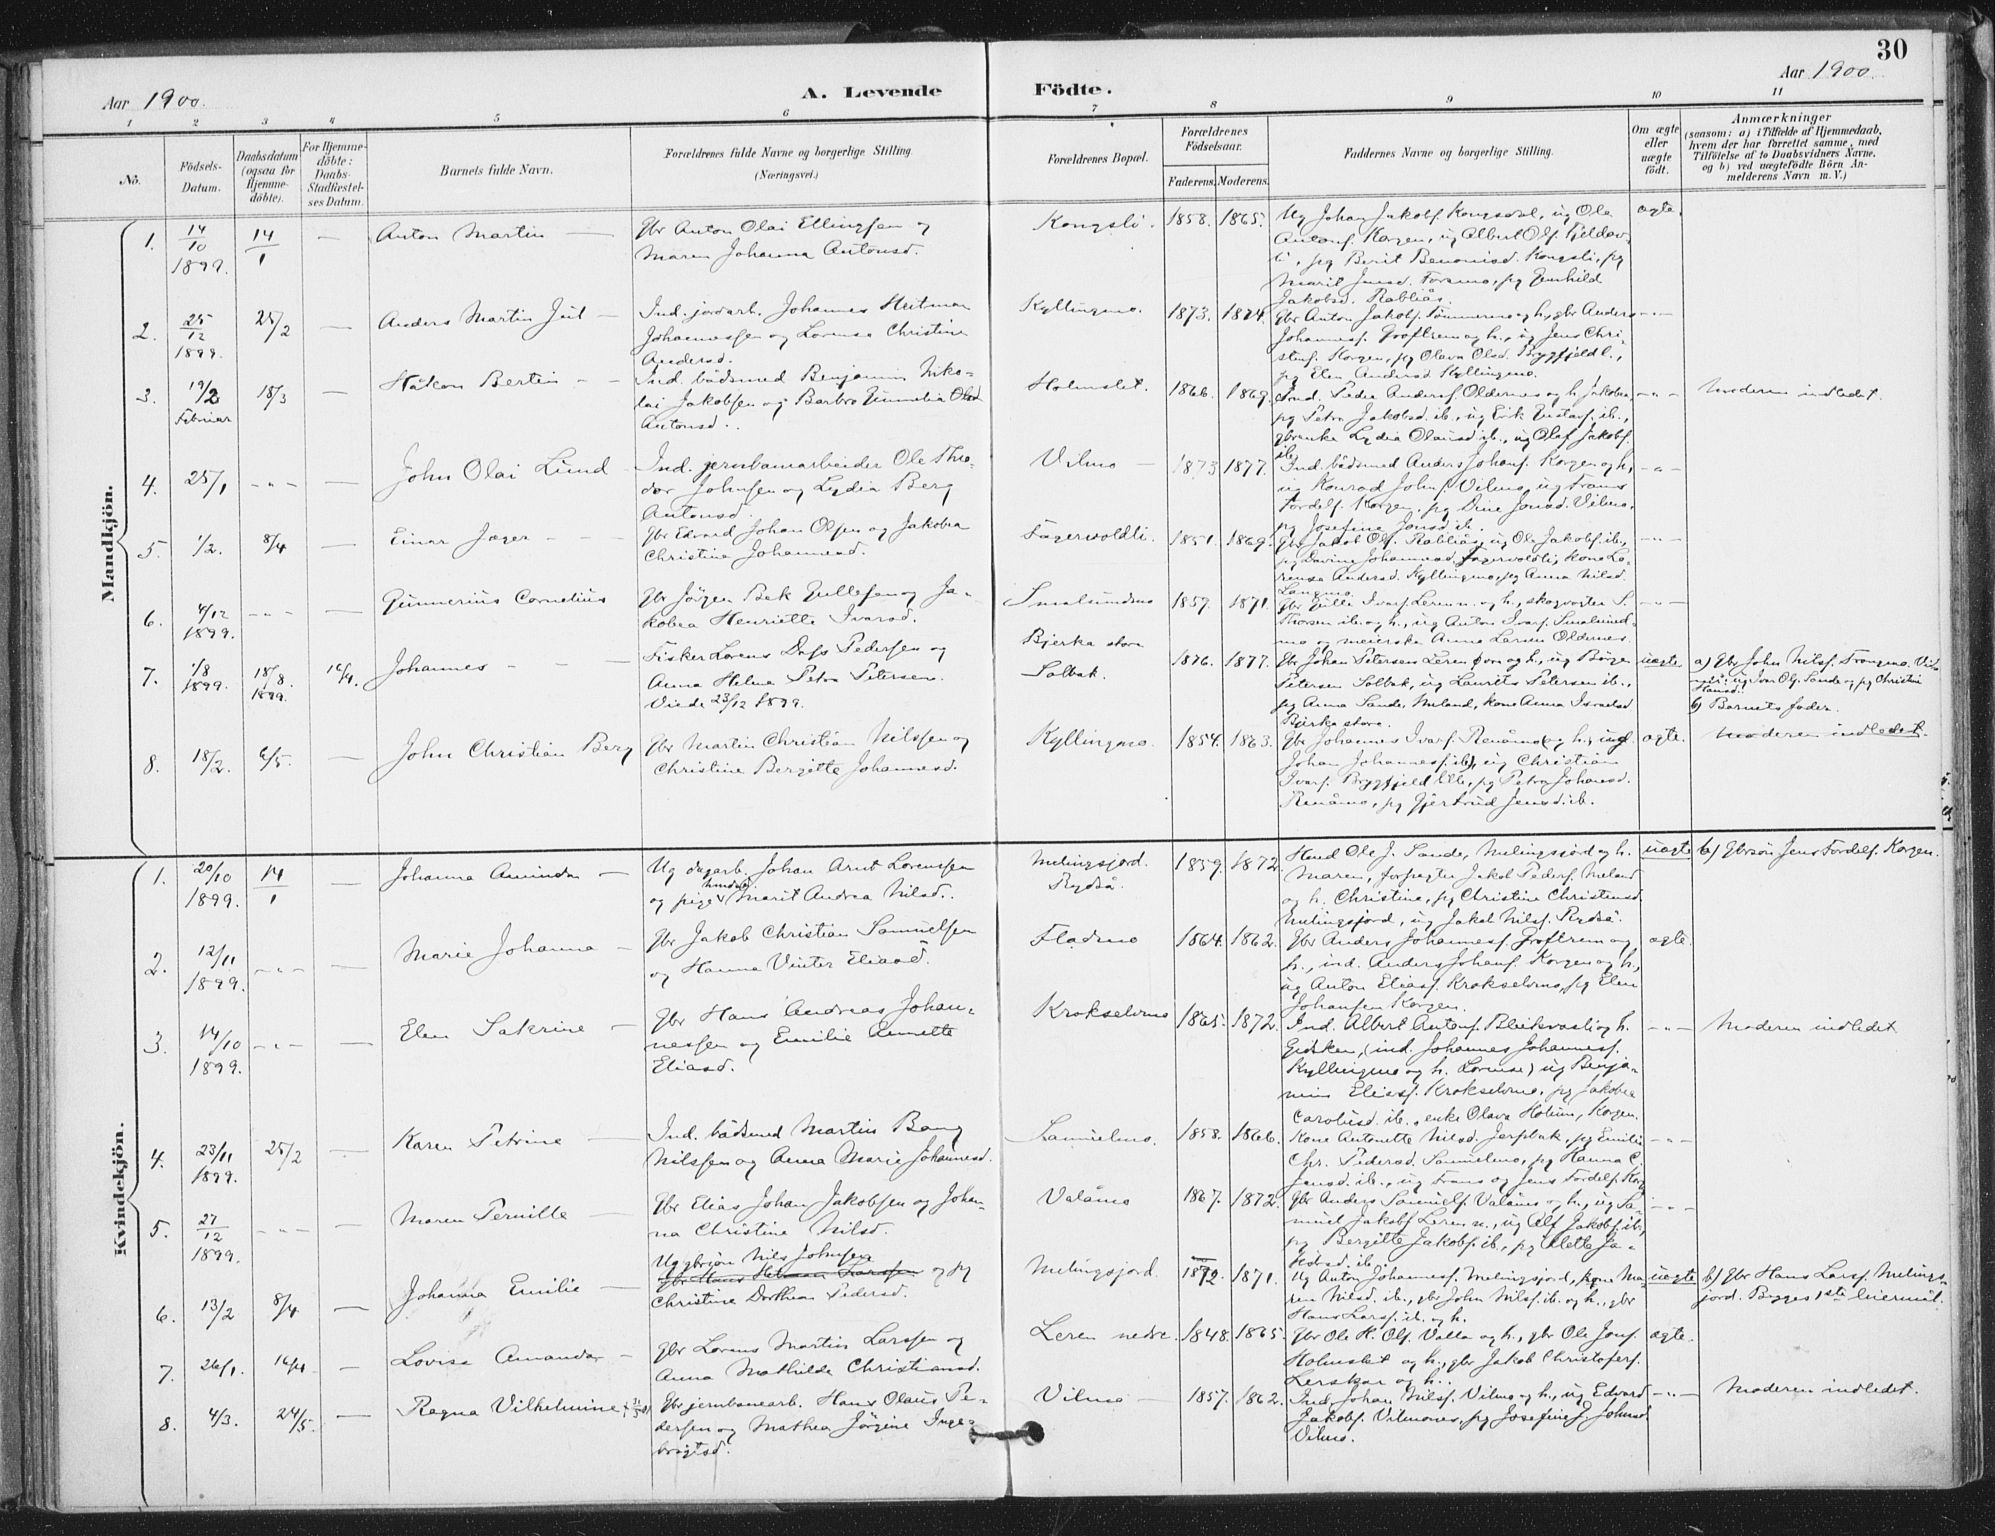 30
Aar 1900.
A. Levende Födte.
Aar 1900
1 2 3 4 5 6 7 8 9 10 11
No.
Födsels-Datum.
Daabsdatum (ogsaa for Hjemme-döbte).
For Hjemme-döbte: Daabs-Stadfæstel-ses Datum.
Barnets fulde Navn.
Forældrenes fulde Navne og borgerlige Stilling. (Næringsvei.)
Forældrenes Bopæl.
Forældrenes Födselsaar.
Faderens. Moderens.
Faddernes Navne og borgerlige Stilling.
Om ægte eller uægte födt.
Anmærkninger
(saasom: a) i Tilfælde af Hjemmedaab, hvem der har forrettet samme, med Tilföielse af to Daabsvidners Navne, og b) ved uægtefödte Börn Anmelderens Navn m. V.)
Mandkjön.
1. 14/10 1899. 14/1 — Anton Martin — Gbr Anton Olai Ellingsen og
Maren Johanna Antonsd.
Kongsli. 1858. 1865. Ug Johan Jakobs. Kongsdal, ug Ole
Antons. Korgen, ug Albert Ols. Fjeldav-
li, pg Berit Benonisd. Kongsli, pg
Marit Jensd. Forsmo, pg Gunhild
Jakobsd. Rabliås.
ægte.
2. 25/12 1899. 25/2 — Anders Martin Juul — Ind. jordarb. Johannes Heitman
Johannessen og Lorense Christine
Andersd.
Kyllingmo. 1873. 1874. Gbr Anton Jakobs. Tömmermo og h., gbr Anders
Johanness. Groftrem og h., ug Jens Chri-
stens. Korgen, pg Olava Olsd. Bryggfjeldl.,
pg Elen Andersd Kyllingmo.
-"-
3. 19/2 Februar 18/3 — Håkon Bertin - - Ind. bådsmed Benjamin Niko-
lai Jakobsen og Barbro Olsd
Antonsd..
Holmslet. 1866. 1869. Ind. Peder Anders. Oldernes og h. Jakobea
pg Petra Jakobsd. ib., ug Erik Gustavs. ib.,
gbrenke Lydia Olausd ib., ug Olaf Jakobs.
ib.
-"- Moderen indledet.
4. 25/1 -"- — John Olai Lund - Ind. jernbanearbeider Ole Theo-
dor Johnsen og Lydia Berg
Antonsd.
Vilmo — 1873 1877. Ind. bådsmed Anders Johans. Korgen og h,
ug Konrad Johns. Vilmo, ug Frans
Fordels. Korgen, pg Dine Jonsd. Vilmo,
pg Josefine Jonsd ib.
-"-
5. 1/2. 8/4 — Einar Jæger - - - Gbr Edvard Johan Olsen og Jakobea
Christine Johannesd.
Fagervoldli. 1851. 1869. Gbr Jakob Ols. Rabliås, ug Ole Jakobs. ib.,
pg Davine Johannesd. Fagervoldli, kone Lo-
rense Andersd. Kyllingmo, pg Anna Nilsd.
Langmo.
-"-
6. 4/12 1899. -"- — Gunnerius Cornelius Gbr Jörgen Bek Gullesen og Ja-
kobea Henriette Ivarsd.
Smalsundmo 1859. 1871. Gbr Gulle Ivars. Leren n. og h., skogvogter S.
Thorsen ib. og h., ug Anton Ivars. Smalsund-
mo og meierske Anna Larsen Oldernes.
-"-
7. 1/8 1899. 18/8. 1899. 16/4. Johannes - - Fisker Lorens Dass Pedersen og
Anna Helene Petra Petersen.
Viede 23/12 1899.
Bjerka store
Solbak. 1876. 1877. Gbr Johan Petersen Leren övre og h., ug Börge
Petersen Solbak, ug Laurits Petersen ib.,
pg Anna Sande, Meland, kone Anna Israelsd
Bjerka store.
uægte a) Gbr John Nilss. Trangmo. Vid-
ner: ug Ivar Ols. Sande og pg Christine
Hansd.
b) Barnets fader.
8. 18/2. 6/5. — John Christian Berg Gbr Martin Christian Nilssen og
Christine Bergitte Johannesd.
Kyllingmo. 1854. 1863. Gbr Johannes Ivars. Renåmo (og h.) ug
Johan Johanness. ib), ug Christian
Ivars. Bryggfjeld lille, pg Petra Johansd.
Renåmo, pg Gjertrud Jensd. ib.
ægte. Moderen indledet.
Kvindekjön.
1. 20/10 1899. 14/1 Johanna Aminda — Ug dagarb. Johan Arnt Lorenssen
og pige Marit Andrea Nilsd..
Melingsjord.
Rydså. 1859. 1872. Hmd Ole J. Sande, Melingsjord og h.
Maren, forpagter Jakob Peders. Meland
og h. Christine, pg Christine Christensd.
Melingsjord, ug Jakob Nilss. Rydså.
uægte b) Gbrsön Jens Fordels. Korgen.
2. 12/11 1899. -"- — Marie Johanna — Gbr Jakob Christian Samuelsen
og Hanna Vinter Eliasd.
Fladmo 1864. 1862. Gbr Anders Johanness. Groftrem og
h., ind. Anders Johans. Korgen og h.,
ug Anton Eliass. Krokselvmo, pg Elen
Johansen Korgen.
ægte.
3. 14/10 1899. -"- — Elen Sakrine — Gbr Hans Andreas Johan-
nessen og Emilie Annette
Eliasd.
Krokselvmo 1865. 1872. Ind. Albert Antons. Bleikvasli og h.
Gjersken, (ind. Johannes Johanness.
Kyllingmo og h. Lorense) ug Benja-
min Eliess. Krokselvmo, pg Jakobea
Carolusd. ib., enke Olava Holum, Korgen.
-"- Moderen indledet
4. 23/11 1899. 25/2 — Karen Petrine — Ind. bådsmed Martin Bang
Nilssen og Anna Marie Johannesd.
Samuelmo. 1858. 1866. Kone Antonette Nilsd. Jerpbak, pg Emilie
Chr. Pedersd. Samuelmo, pg Hanna C.
Jensd. ib., ug Frans og Jens Fordels. Korg.
-"-
5. 27/12 1899. -"- — Maren Pernille — Gbr Elias Johan Jakobsen og Johan-
na Christine Nilsd.
Valåmo 1867. 1872. Gbr Anders Samuels. Valåmo og h., ug Sa-
muel Jakobs. Leren n., ug Alf Jakobs. ib,
pg Bergitte Jakobs. ib., pg Olette Ja-
kobsd. ib.
-"-
6. 13/2 8/4 — Johanna Emilie — Ug gbrsön Nils Johnsen
gbr Hans Heitman Larssen og pg
Christine Dorthea Pedersd.
Melingsjord. 1872. 1871. Ug Anton Johanness. Melingsjord, kone Ma-
ren Nilsd. ib., gbr John Nilss. ib. og h., gbr
Hans Larss. ib. og h.
uægte b) Gbr Hans Larss. Melings-
jord. Begges 1ste leiermål.
7. 26/1. 16/4. — Lovise Amanda — Gbr Lorens Martin Larssen og
Anna Mathilde Christiansd.
Leren nedre. 1848. 1865. Gbr Ole K. Ols. Valla og h., gbr Ole Jons.
Holmslet og h., gbr Jakob Christofers.
Lerskar og h..
ægte.
8. 4/3. 24/5. — Ragna Vilhelmine Gbr jernbanearb. Hans Olaus Pe-
dersen og Mathea Jörgine Inge-
brigtsd.
Vilmo — 1857. 1862. Ind. Johan Nilss. Vilmo og h., ug Edvard
Jakobs. Vilmones, pg Josefine J. Johnsd.
Vilmo.
-"- Moderen indledet.